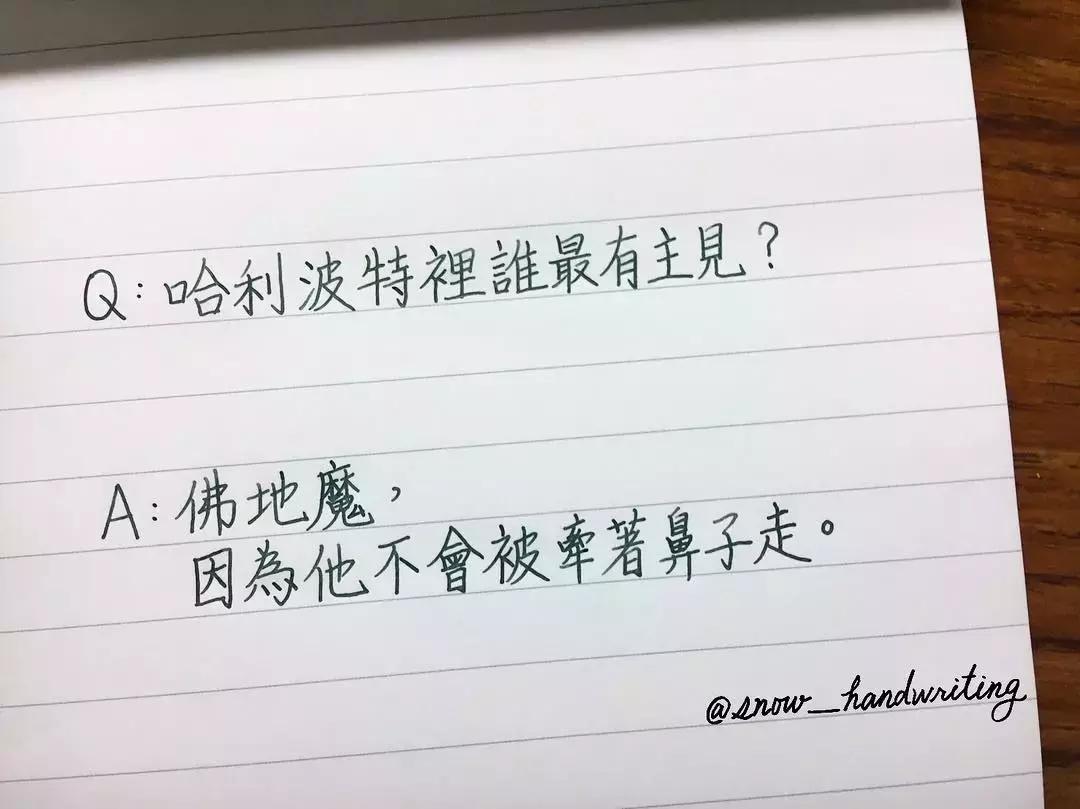 Q:哈利波特裡誰最有主見?
A:佛地魔,
因為他不會被牽著鼻子走。
@snow_handwriting